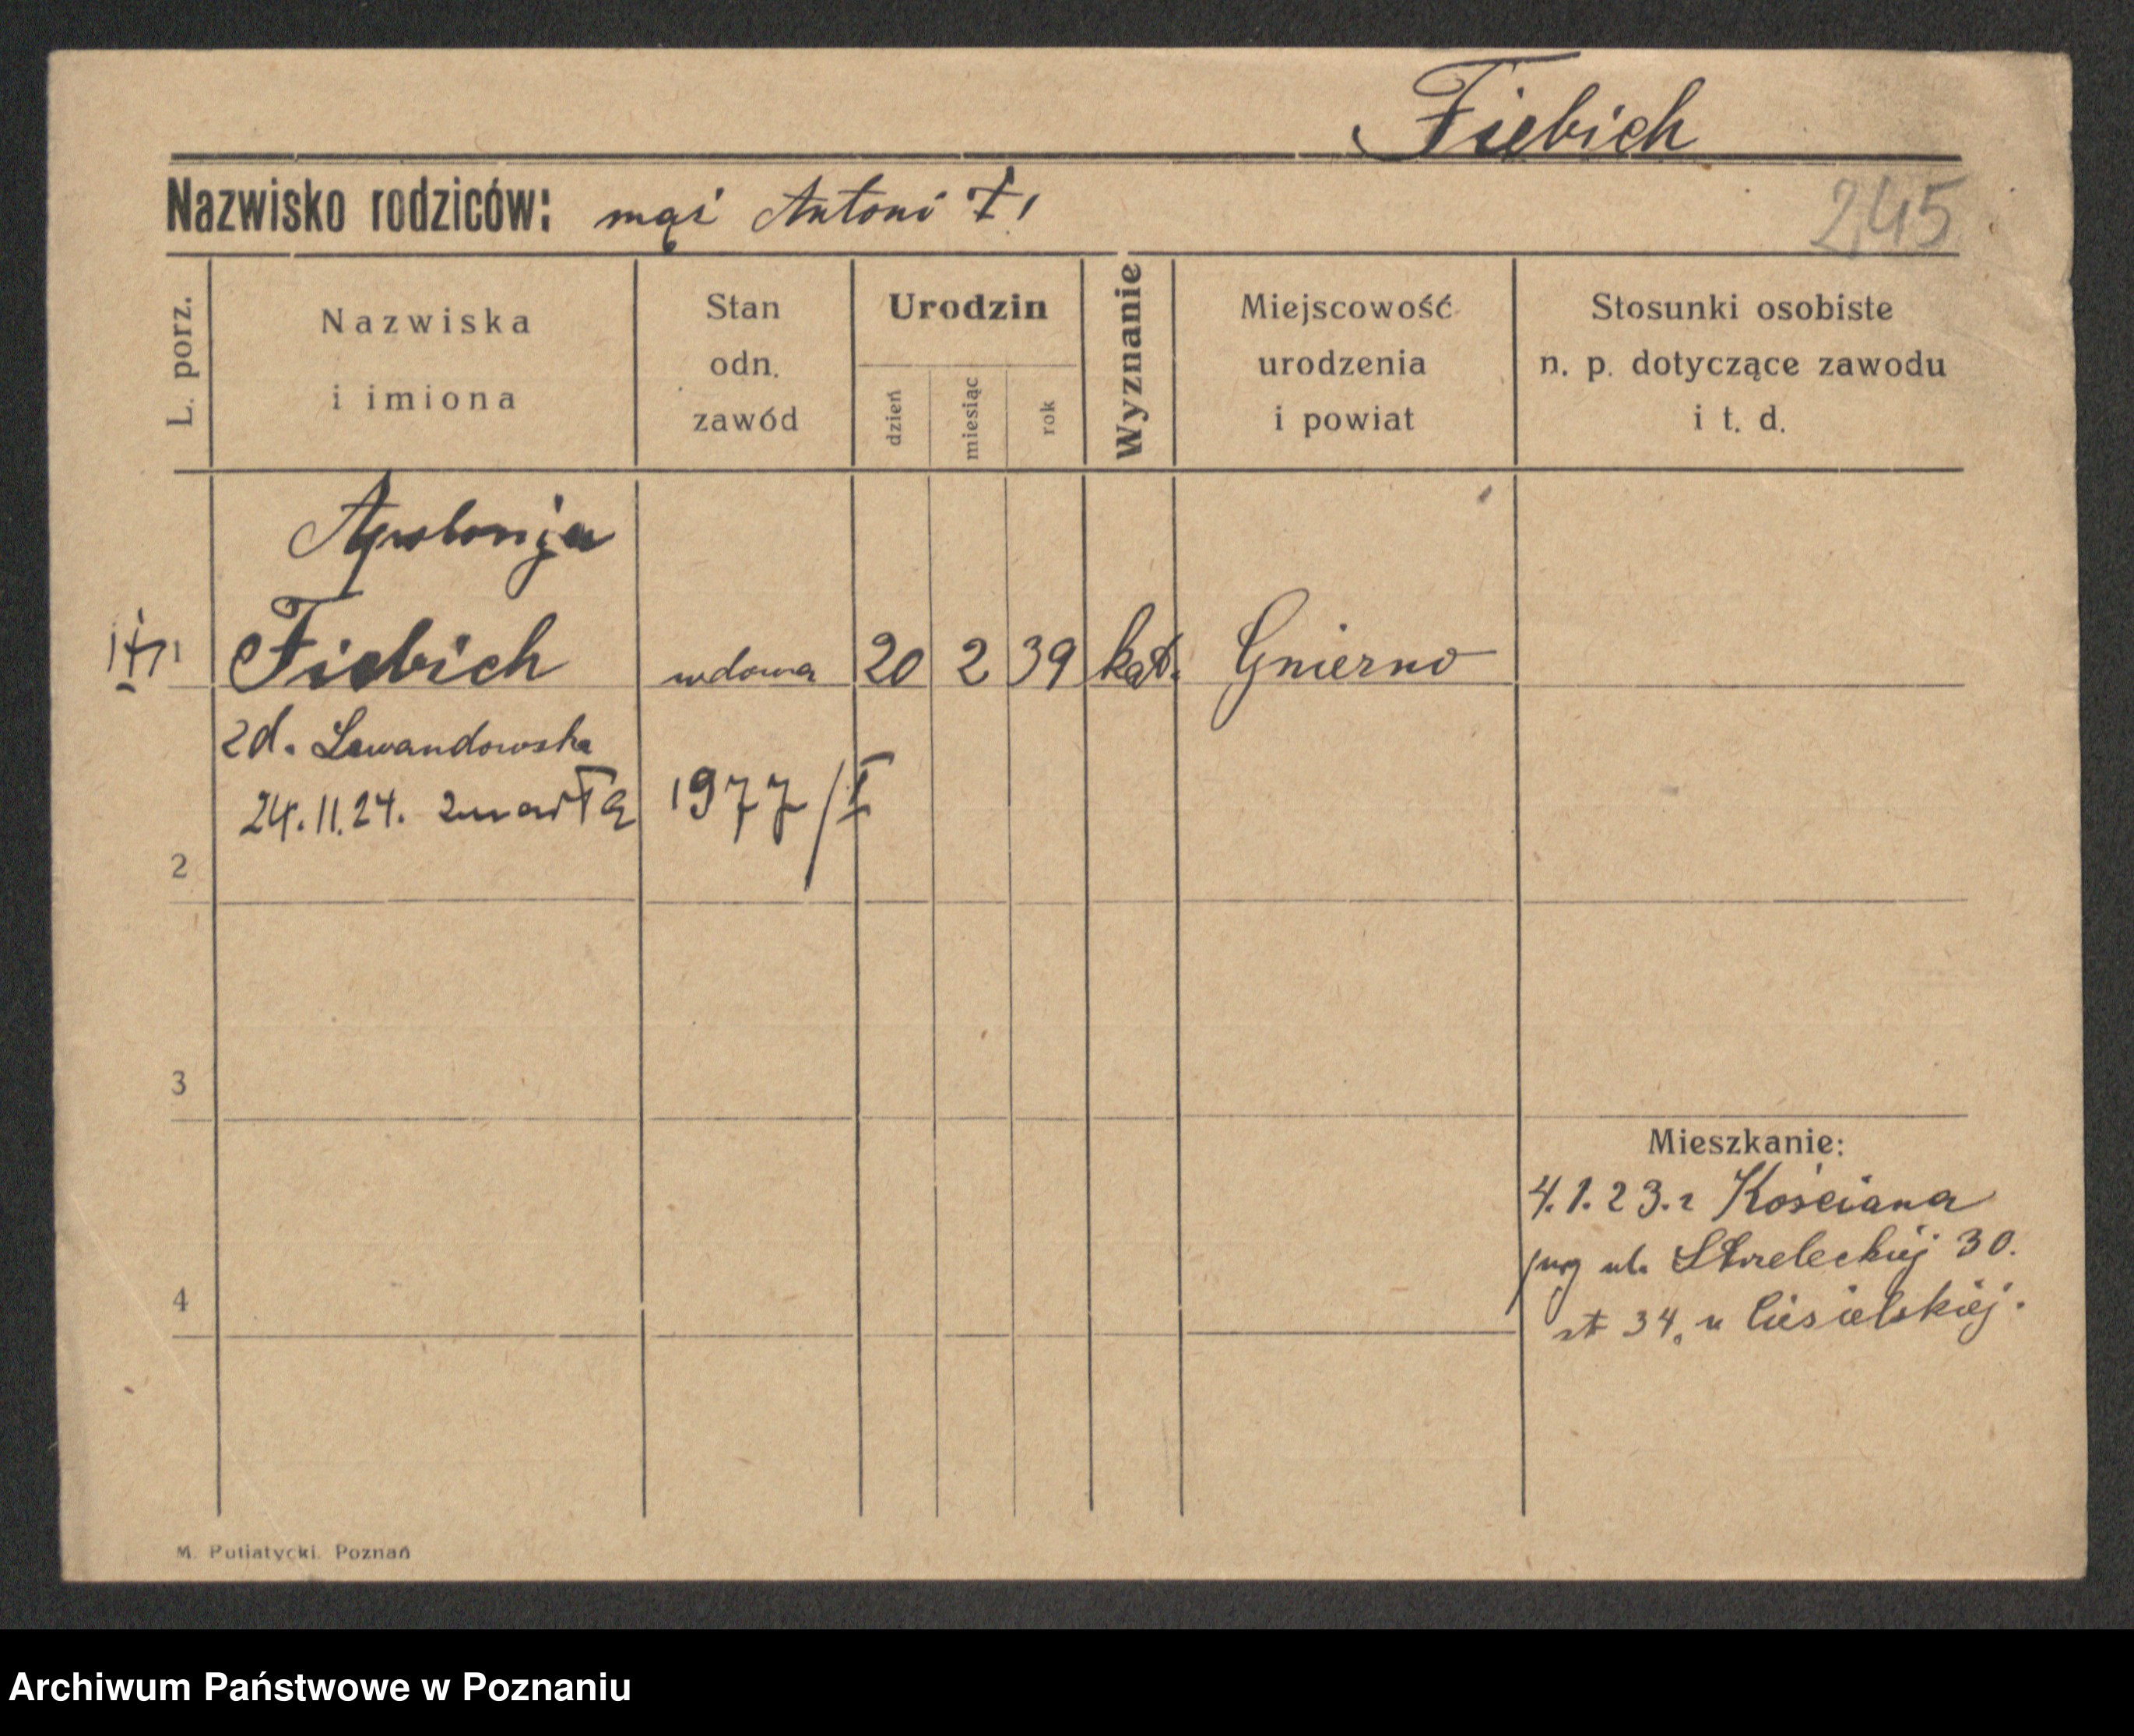 Fiebich
Nazwisko rodziców: mąż Antoni
245
L. porz.
Nazwiska
i imiona
Stan
odn.
zawód
Urodzin
dzień
miesiąc
rok
Wyznanie
Miejscowość
urodzenia
i powiat
Stosunki osobiste
n. p. dotyczące zawodu
i t. d.
Apolonja
Fiebich wdowa 20 2 39 kat. Gniezno
zd. Lewandowska
24.11.24. zmarła 1977/I
2
3
Mieszkanie:
4.1.23. z Kościana
ul. Strzeleckiej 30.
4
34. u Ciesielskiej.
M. Putiatycki. Poznań
Archiwum Państwowe w Poznaniu